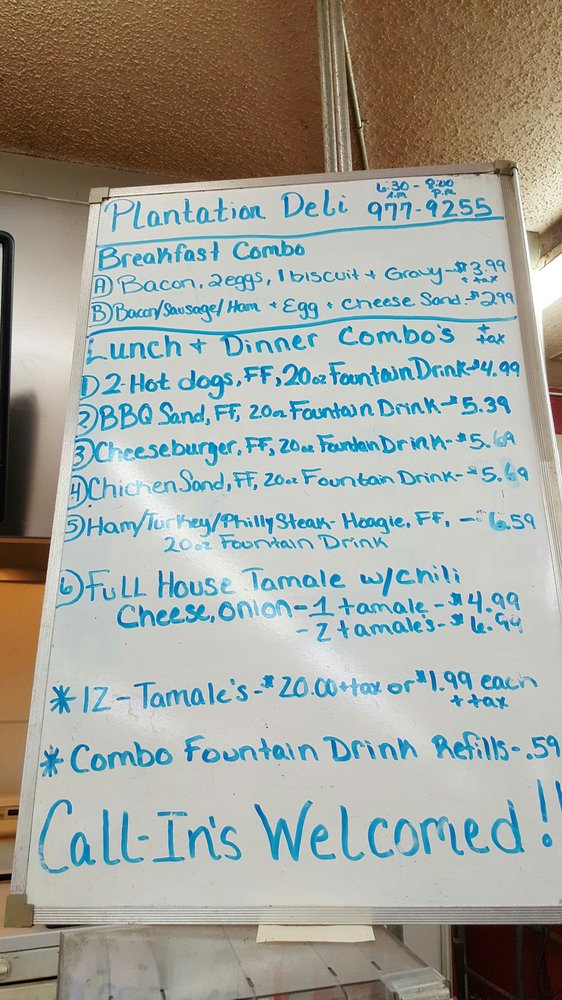 6:30 - 8:00
A.M. P.M.
Plantation Deli 977-9255
Breakfast Combo
A) Bacon, 2eggs, 1 biscuit + Gravy - $3.99
+ tax
B) Bacon/Sausage/Ham + Egg + Cheese Sand - $2.99
+ tax
Lunch + Dinner Combo's
1) 2-Hot dogs, FF, 20oz Fountain Drink - $4.99
2) BBQ Sand, FF, 20oz Fountain Drink - $5.39
3) Cheeseburger, FF, 20oz Fountain Drink - $5.69
4) Chicken Sand, FF, 20oz Fountain Drink - $5.69
5) Ham/Turkey/Philly Steak - Hoagie, FF, - $6.59
20oz Fountain Drink
6) Full House Tamale w/chili
Cheese, onion - 1 tamale - $4.99
- 2 tamale's - $6.99
* 12 - Tamale's - $20.00 + tax or $1.99 each
+ tax
* Combo Fountain Drink Refills - .59
Call-In's Welcomed!!